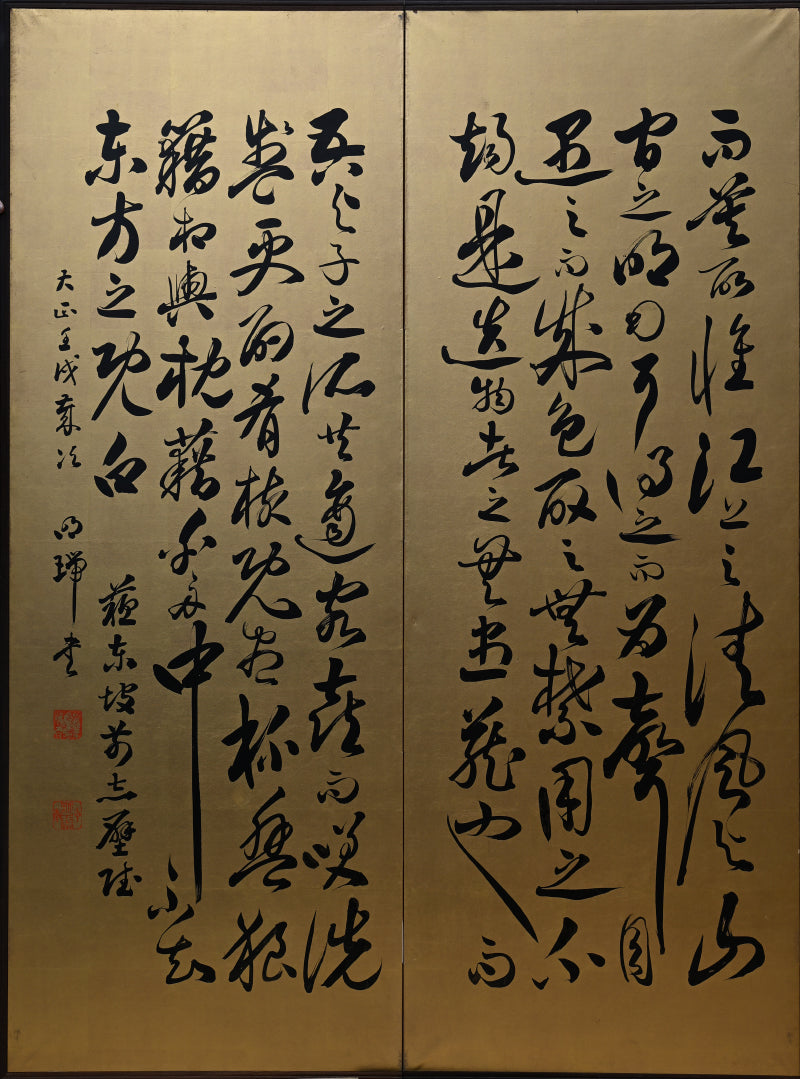 而莫取惟江上之清風與山
間之明月耳得之而為聲目
遇之而成色取之無禁用之不
竭是造物者之無盡藏也而
吾與子之所共適客喜而笑洗
盞更酌肴核既盡杯盤狼
籍相與枕藉乎舟中不知
東方之既白
蘇東坡前赤壁賦
大正壬戌歲次 明瑞書